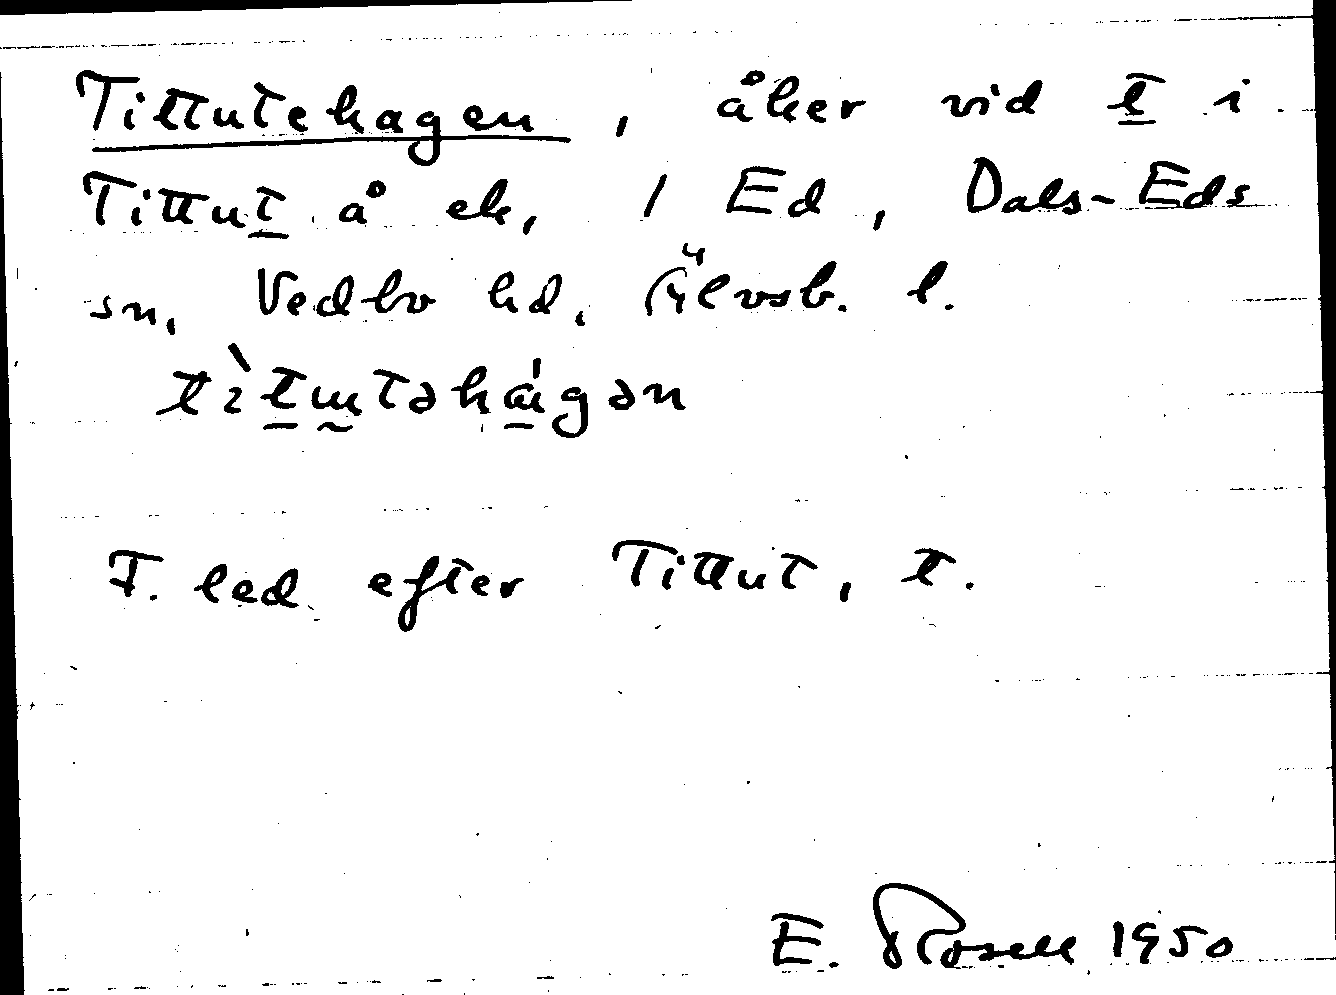 Tittutehagen, åker vid t i
Tittut å ek, 1 Ed, Dals-Eds
sn, Vedbo hd, Älvsb. l.
F. led efter Tittut, t.
E. Rosell 1950